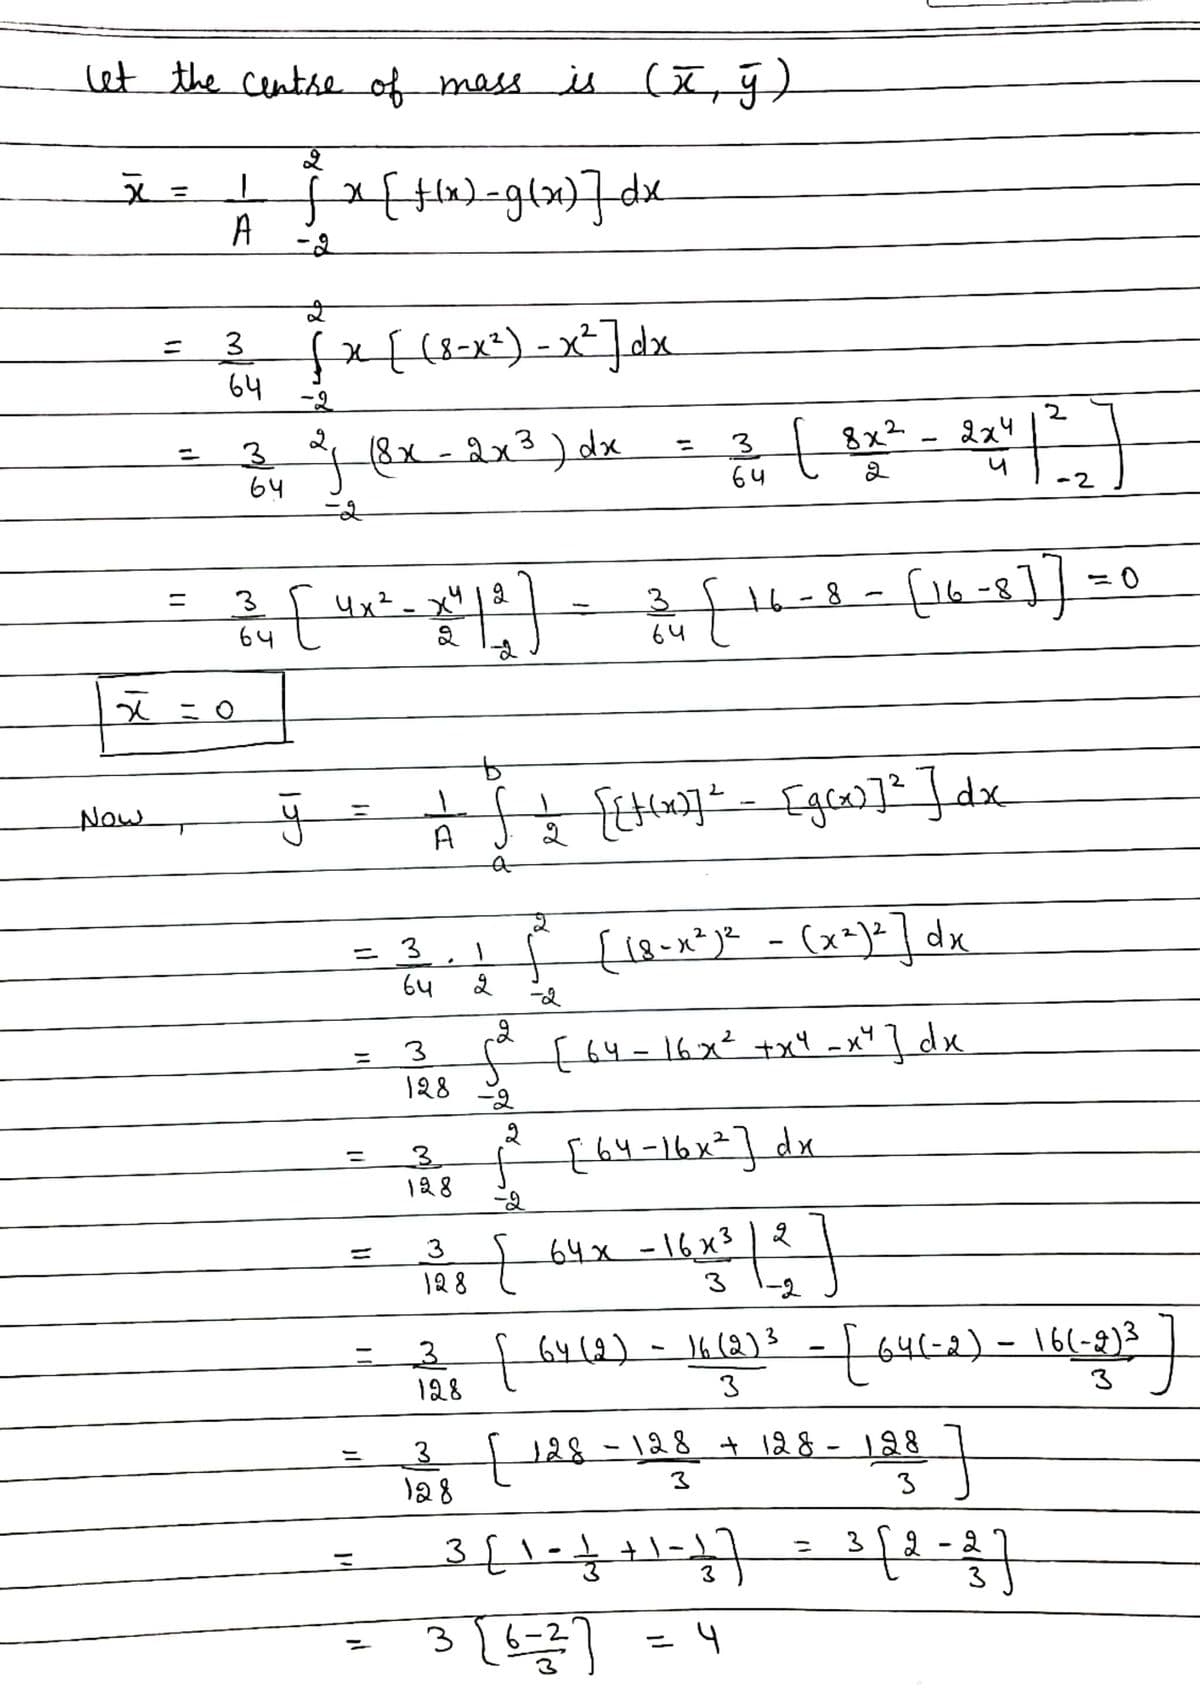 let the centre of mass is (x̄, ȳ)
x̄ = 1/A ∫_{-2}^{2} x [f(x)-g(x)] dx
= 3/64 ∫_{-2}^{2} x [(8-x²) - x²] dx
= 3/64 ∫_{-2}^{2} (8x - 2x³) dx = 3/64 [ 8x²/2 - 2x⁴/4 |_{-2}^{2} ]
= 3/64 [ 4x² - x⁴/2 |_{-2}^{2} ] = 3/64 [ 16-8 - [16-8] ] = 0
x̄ = 0
Now, ȳ = 1/A ∫_{a}^{b} 1/2 [[f(x)]² - [g(x)]²] dx
= 3/64 · 1/2 ∫_{-2}^{2} [(8-x²)² - (x²)²] dx
= 3/128 ∫_{-2}^{2} [64 - 16x² + x⁴ - x⁴] dx
= 3/128 ∫_{-2}^{2} [64-16x²] dx
= 3/128 [ 64x - 16x³/3 |_{-2}^{2} ]
= 3/128 [ 64(2) - 16(2)³/3 - [ 64(-2) - 16(-2)³/3 ]
= 3/128 [ 128 - 128/3 + 128 - 128/3 ]
= 3 [ 1 - 1/3 + 1 - 1/3 ] = 3 [ 2 - 2/3 ]
= 3 [ 6-2/3 ] = 4